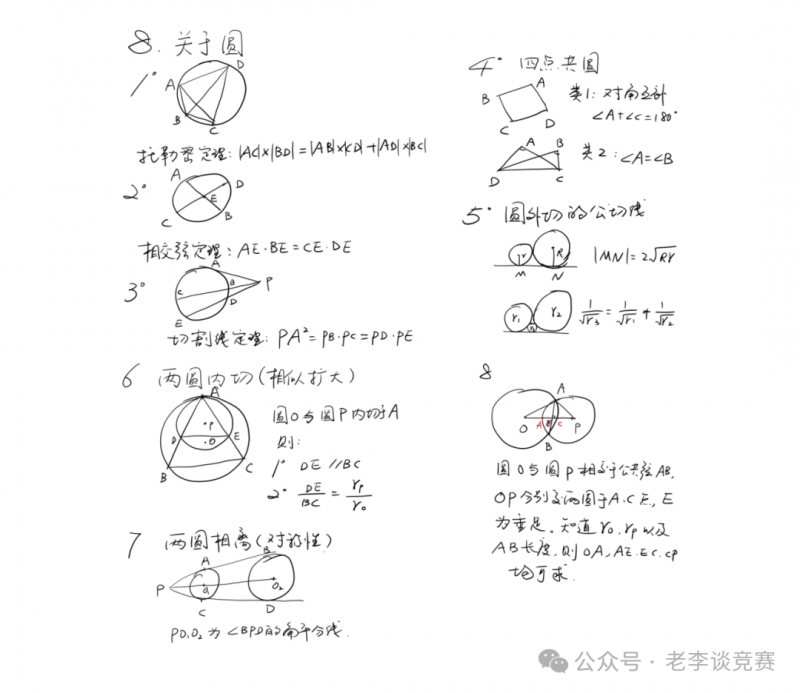 8. 关于圆
1°
A
D
B
C
托勒密定理: |AC|×|BD|=|AB|×|CD|+|AD|×|BC|
2°
A
D
E
C
B
相交弦定理: AE·BE=CE·DE
3°
A
P
C
B
D
E
切割线定理: PA²=PB·PC=PD·PE
4° 四点共圆
A
B
C
D
类1: 对角互补
∠A+∠C=180°
A
B
D
C
类2: ∠A=∠B
5° 圆外切的公切线
r
R
M
N
|MN|=2√Rr
r₁
r₂
1/√r₃=1/√r₁+1/√r₂
6 两圆内切(相似扩大)
A
P
D
O
E
B
C
圆O与圆P内切于A
则:
1° DE//BC
2° DE/BC=rP/rO
7 两圆相离(对称性)
A
B
P
O₁
O₂
C
D
PO₁O₂为∠BPD的角平分线.
8
A
O
A
C
P
B
圆O与圆P相交于公共弦AB,
OP分别交两圆于A.C点, E
为垂足. 知道rO, rP以及
AB长度, 则OA, AE. EC. CP
均可求.
公众号 · 老李谈竞赛